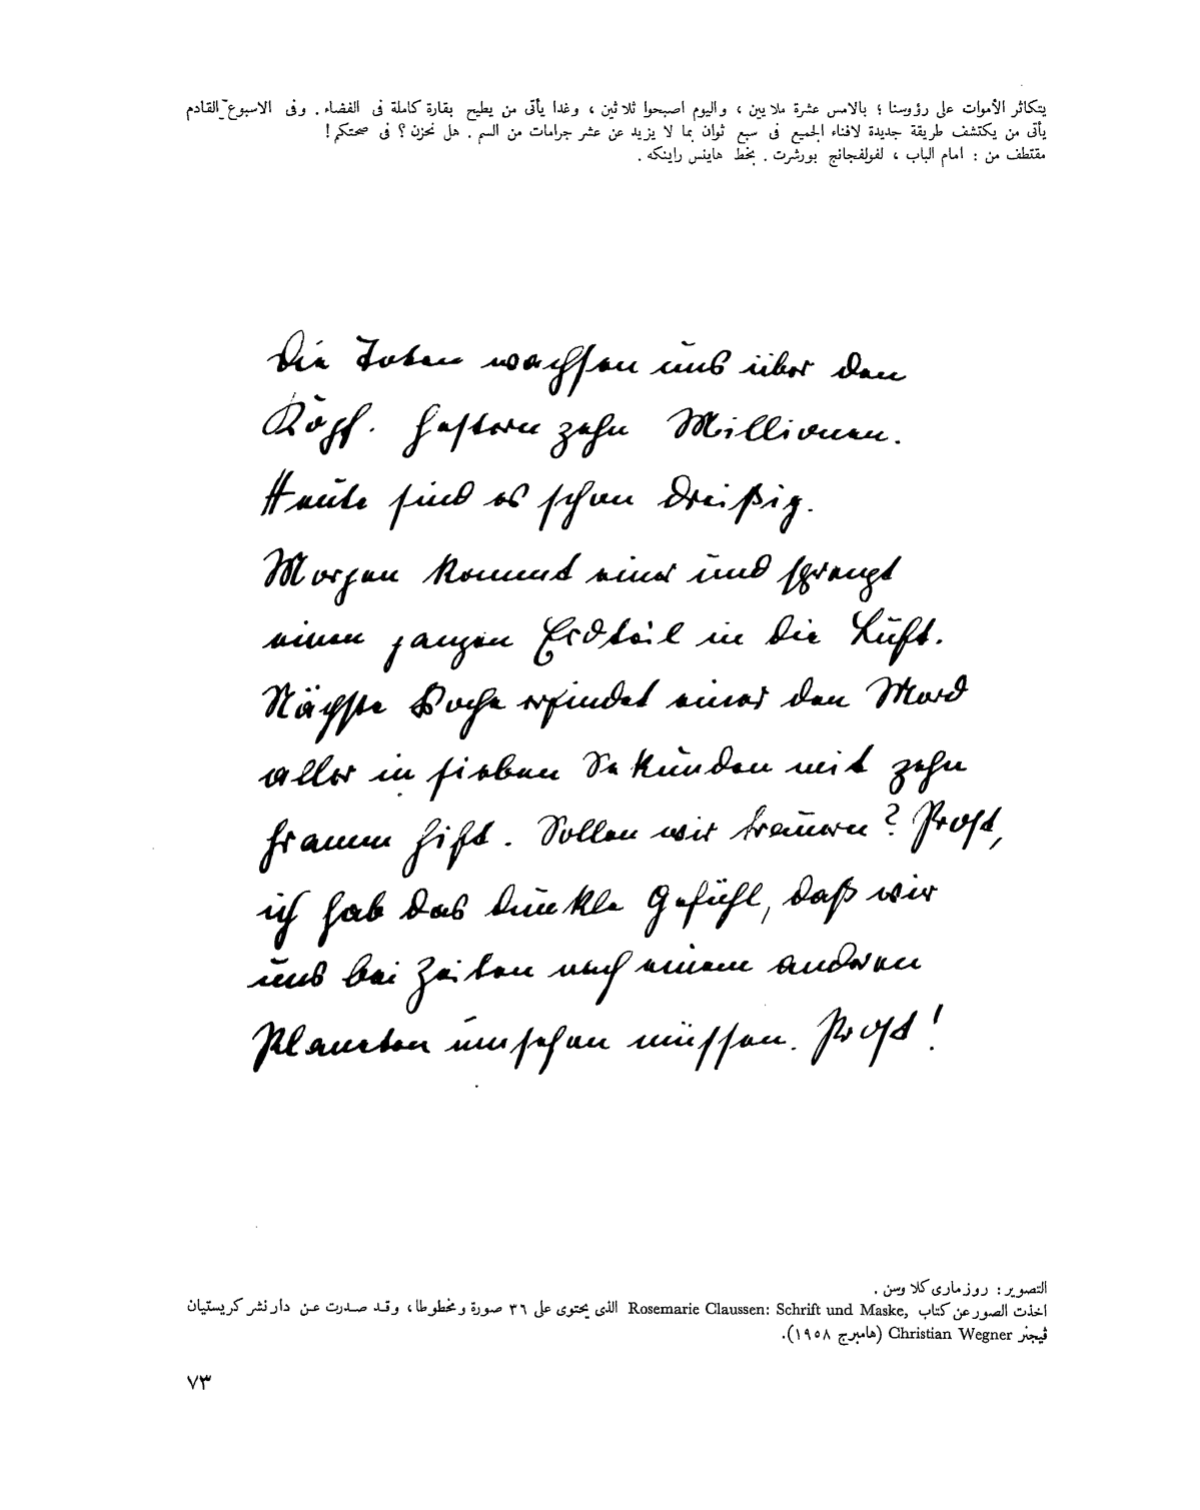 يتكاثر الأموات على رؤوسنا ؛ بالامس عشرة ملايين ، واليوم اصبحوا ثلاثين ، وغدا يأتى من يطيح بقارة كاملة فى الفضاء . وفى الاسبوع القادم
يأتى من يكتشف طريقة جديدة لافناء الجميع فى سبع ثوان بما لا يزيد عن عشر جرامات من السم . هل نحزن ؟ فى صحتكم !
مقتطف من : امام الباب ، لفولفجانج بورشرت . بخط هاينس راينكه .
Die Toten wachsen uns über den
Kopf. Gestern zehn Millionen.
Heute sind es schon dreißig.
Morgen kommt einer und sprengt
einen ganzen Erdteil in die Luft.
Nächste Woche erfindet einer den Mord
aller in sieben Sekunden mit zehn
Gramm Gift. Sollen wir trauern? Prost,
ich hab das dunkle Gefühl, daß wir
uns bei Zeiten nach einem anderen
Planeten umsehen müssen. Prost!
التصوير : روزمارى كلاوسن .
اخذت الصور عن كتاب Rosemarie Claussen: Schrift und Maske, الذى يحتوى على ٣٦ صورة ومخطوطا ، وقد صدرت عن دار نشر كريستيان
ڤيجنر Christian Wegner (هامبرج ١٩٥٨).
٧٣